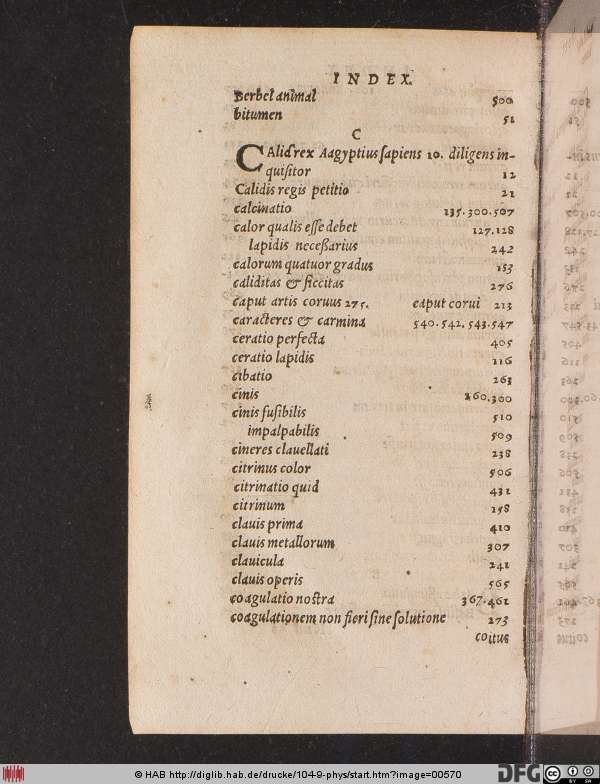 INDEX.
Berbel animal 500
bitumen 51
C
CAlid rex Aagyptius sapiens 10. diligens in-
quisitor 12
Calidis regis petitio 21
calcinatio 135.300.507
calor qualis esse debet 127.128
lapidis neceßarius 242
calorum quatuor gradus 153
caliditas & siccitas 276
caput artis coruus 275. caput corui 213
caracteres & carmina 540.542.543.547
ceratio perfecta 405
ceratio lapidis 116
cibatio 263
cinis 260.300
cinis fusibilis 510
impalpabilis 509
cineres clauellati 238
citrinus color 506
citrinatio quid 431
citrinum 158
clauis prima 410
clauis metallorum 307
clauicula 241
clauis operis 565
coagulatio nostra 367.461
coagulationem non fieri sine solutione 273
coitus
© HAB http://diglib.hab.de/drucke/104-9-phys/start.htm?image=00570
DFG
CC BY SA